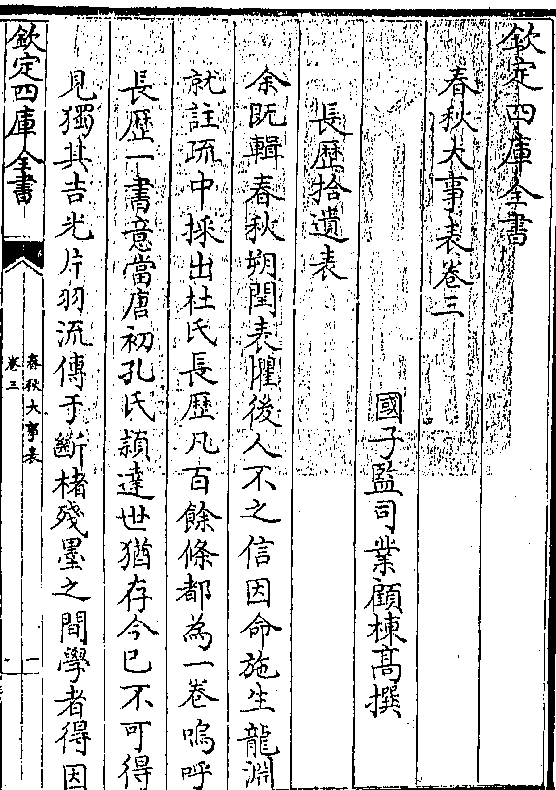 欽定四庫全書
春秋大事表卷三
國子監司業顧棟髙撰
長歴拾遺表
余既輯春秋朔閏表懼後人不之信因命施生龍淵
就註疏中採出杜氏長歴凡百餘條都為一卷嗚呼
長歴一書意當唐初孔氏頴達世猶存今已不可得
見獨其吉光片羽流傳于斷楮殘墨之間學者得因
欽定四庫全書
春秋大事表
卷三
一